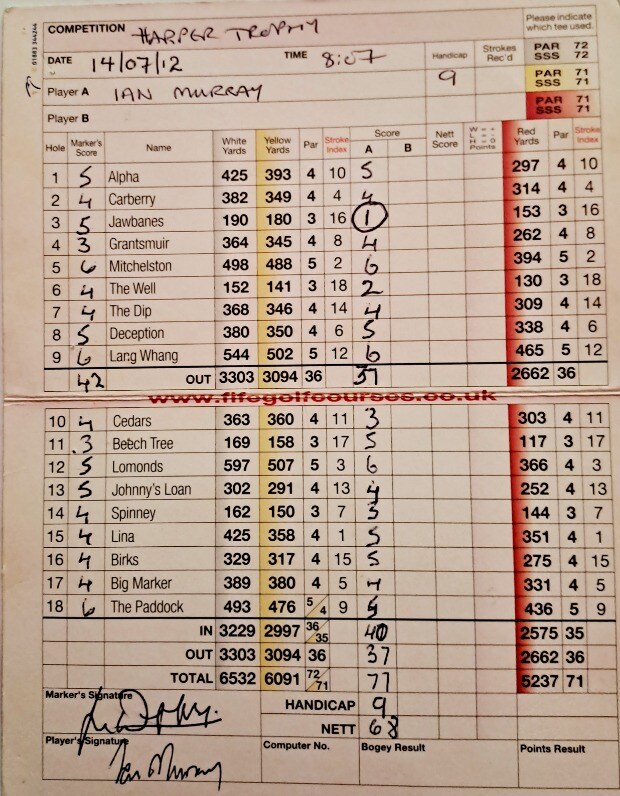 COMPETITION HARPER TROPHY
Please indicate which tee used.
DATE 14/07/12 TIME 8:07 Handicap Strokes Rec'd PAR 72 SSS 72
Player A IAN MURRAY 9 PAR 71 SSS 71
Player B PAR 71 SSS 71
01883 344244
Hole Marker's Score Name White Yards Yellow Yards Par Stroke Index Score A B Nett Score W = + L = - H = 0 Points Red Yards Par Stroke Index
1 5 Alpha 425 393 4 10 5 297 4 10
2 4 Carberry 382 349 4 4 4 314 4 4
3 5 Jawbanes 190 180 3 16 1 153 3 16
4 3 Grantsmuir 364 345 4 8 4 262 4 8
5 6 Mitchelston 498 488 5 2 6 394 5 2
6 4 The Well 152 141 3 18 2 130 3 18
7 4 The Dip 368 346 4 14 4 309 4 14
8 5 Deception 380 350 4 6 5 338 4 6
9 6 Lang Whang 544 502 5 12 6 465 5 12
42 OUT 3303 3094 36 37 2662 36
www.fifegolfcourses.co.uk
10 4 Cedars 363 360 4 11 3 303 4 11
11 3 Beech Tree 169 158 3 17 5 117 3 17
12 5 Lomonds 597 507 5 3 6 366 4 3
13 5 Johnny's Loan 302 291 4 13 4 252 4 13
14 4 Spinney 162 150 3 7 3 144 3 7
15 4 Lina 425 358 4 1 5 351 4 1
16 4 Birks 329 317 4 15 5 275 4 15
17 4 Big Marker 389 380 4 5 4 331 4 5
18 6 The Paddock 493 476 5/4 9 5 436 5 9
IN 3229 2997 36/35 40 2575 35
OUT 3303 3094 36 37 2662 36
TOTAL 6532 6091 72/71 77 5237 71
Marker's Signature HANDICAP 9
NETT 68
Player's Signature Ian Murray Computer No. Bogey Result Points Result